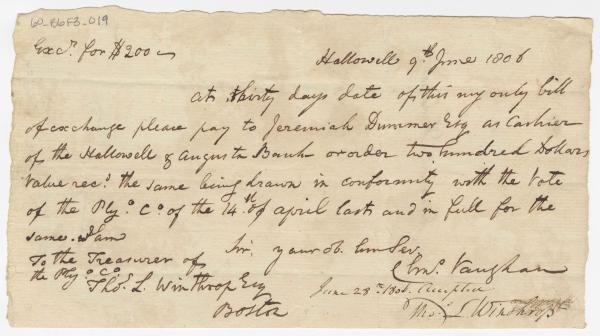 60-B6F3-019
Excª. for $200
Hallowell 9th June 1806
At thirty days date of this my only bill
of exchange please pay to Jeremiah Dummer Esq as Cashier
of the Hallowell & Augusta Bank or order two hundred Dollars
Value recd. the same being drawn in conformity with the Vote
of the Plyo. Co. of the 14th of april last and in full for the
same. I am
Sir, your ob. hm Ser.
Chas. Vaughan
To the Treasurer of
the Plyo. Co.
Thos. L. Winthrop Esq
Boston
June 28th 1806. Accepted
Thos. L Winthrop